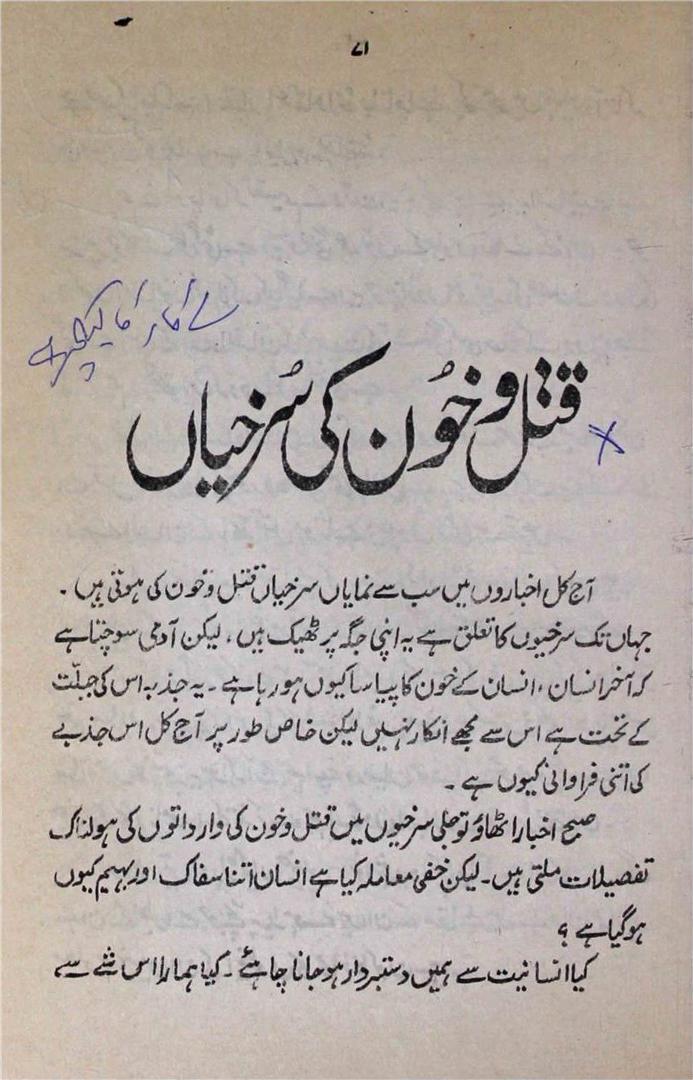 ۷۱
قتل و خُون کی سُرخیاں
آج کل اخباروں میں سب سے نمایاں سرخیاں قتل و خون کی ہوتی ہیں ۔
جہاں تک سرخیوں کا تعلق ہے یہ اپنی جگہ پر ٹھیک ہیں ، لیکن آدمی سوچتا ہے
کہ آخر انسان ، انسان کے خون کا پیاسا کیوں ہو رہا ہے ۔ یہ جذبہ اس کی جبلّت
کے تحت ہے اس سے مجھے انکار نہیں لیکن خاص طور پر آج کل اس جذبے
کی اتنی فراوانی کیوں ہے ۔
صبح اخبار اٹھاؤ تو جلی سرخیوں میں قتل و خون کی وارداتوں کی ہولناک
تفصیلات ملتی ہیں ۔ لیکن خفی معاملہ کیا ہے انسان اتنا سفاک اور بہیم کیوں
ہو گیا ہے ؟
کیا انسانیت سے ہمیں دستبردار ہو جانا چاہئے ۔ کیا ہمارا اس شے سے